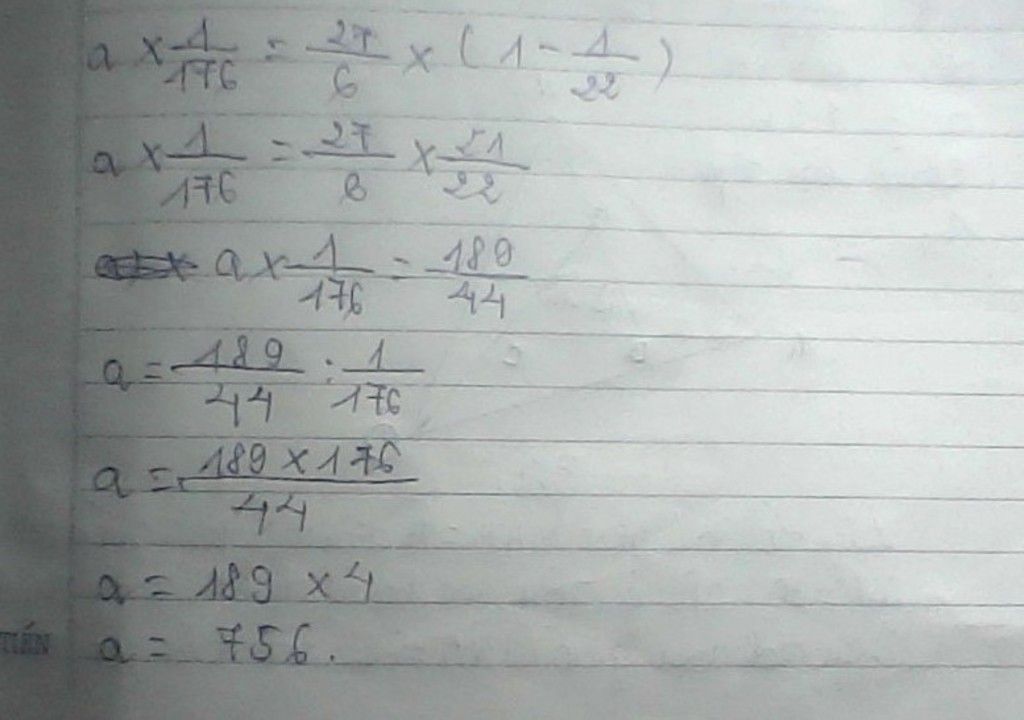 a × 1/176 = 27/6 × (1 - 1/22)
a × 1/176 = 27/6 × 21/22
a × 1/176 = 189/44
a = 189/44 : 1/176
a = 189 × 176/44
a = 189 × 4
a = 756.